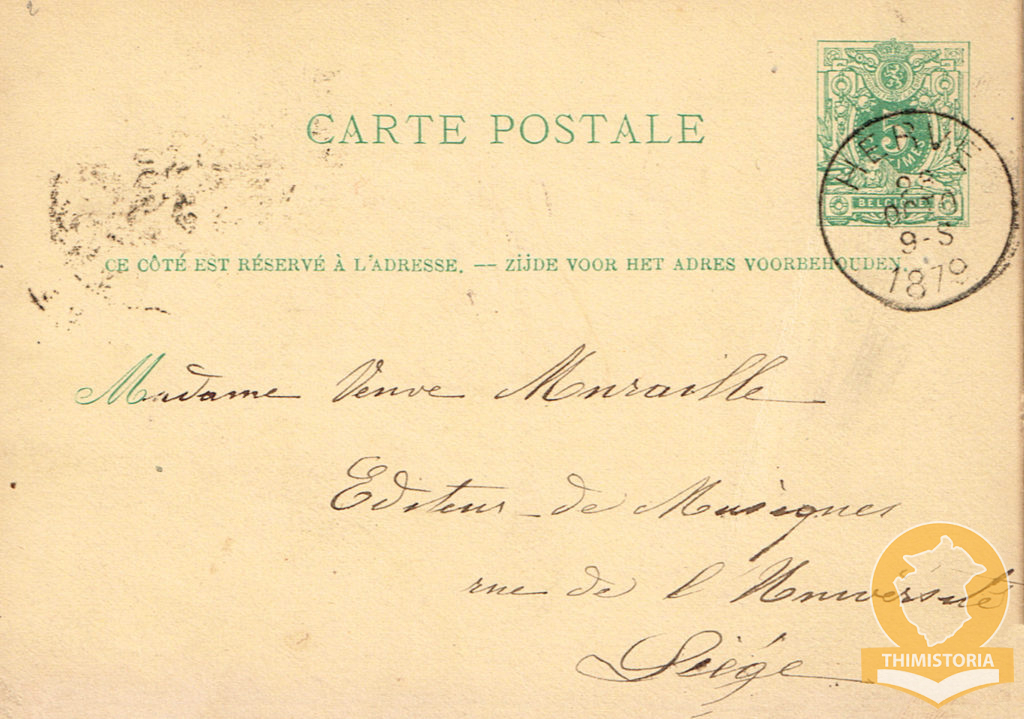 CARTE POSTALE
5
BELGIQUE
HERVE
9-S
1879
CE CÔTÉ EST RÉSERVÉ À L'ADRESSE. — ZIJDE VOOR HET ADRES VOORBEHOUDEN.
Madame Veuve Muraille
Editeur de Musiques
rue de l Université
Liége
THIMISTORIA